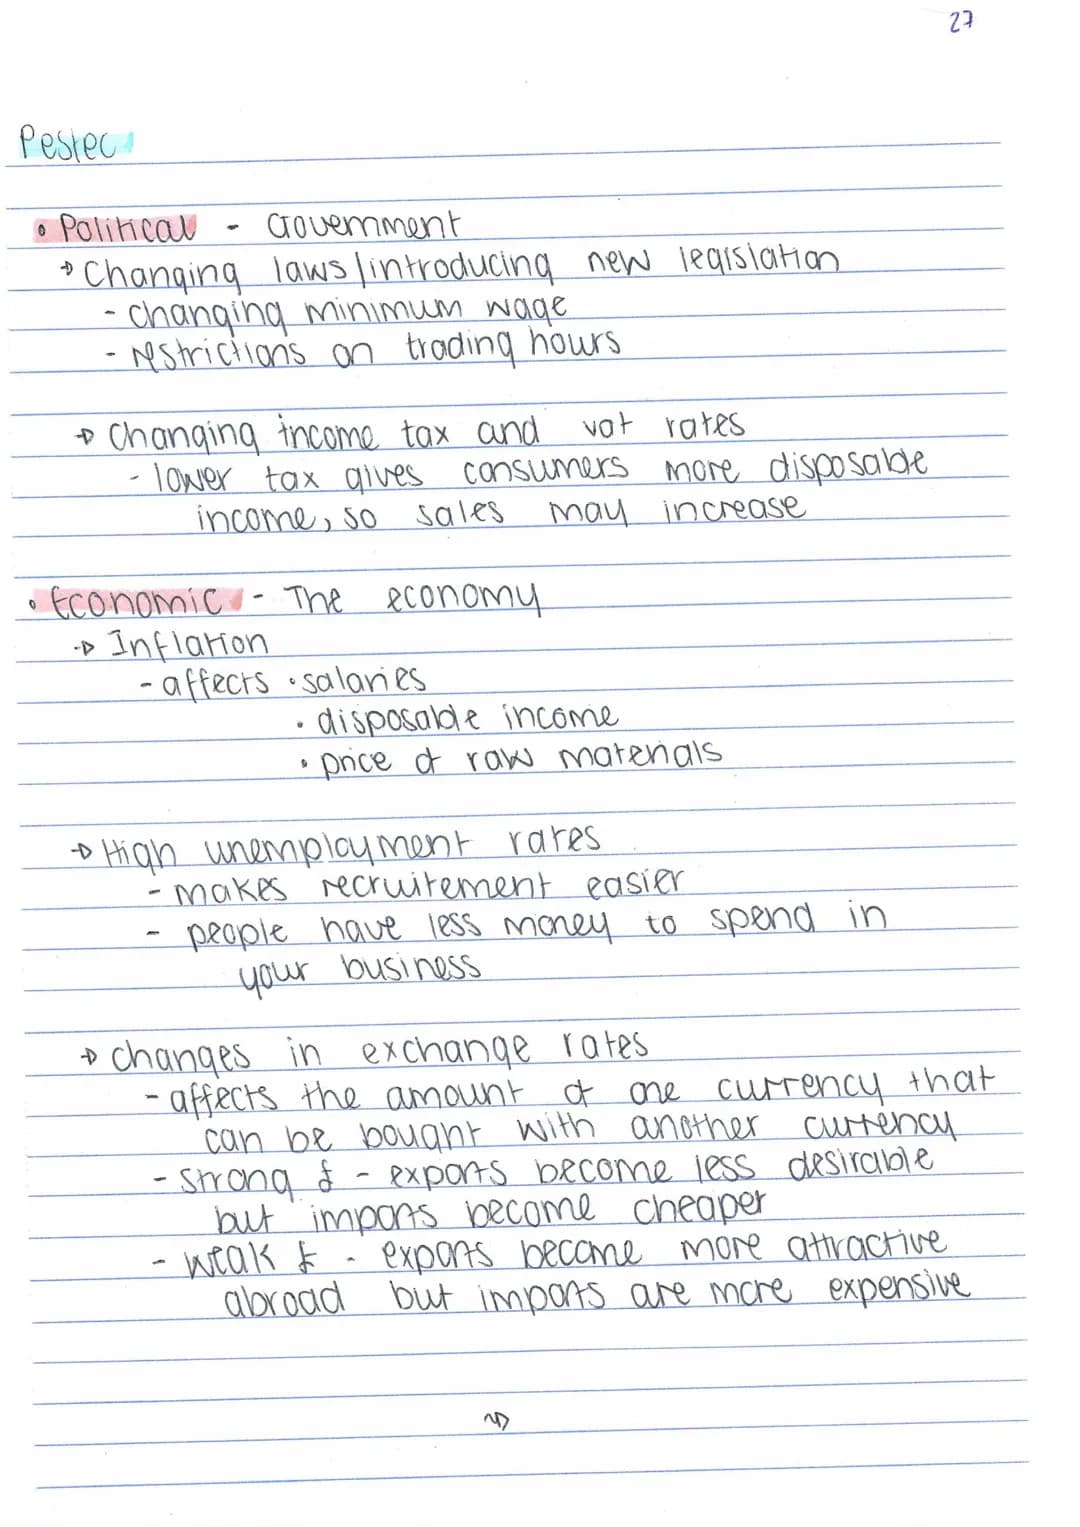 27
Pestec
• Political - Government
→ Changing laws/introducing new legislation
- changing minimum wage
- restrictions on trading hours
→ Changing income tax and vat rates
- lower tax gives consumers more disposable
income, so sales may increase
• Economic - The economy
→ Inflation
- affects • salaries
• disposable income
• price of raw materials
→ High unemployment rates
- makes recruitement easier
- people have less money to spend in
your business
→ changes in exchange rates
- affects the amount of one currency that
can be bought with another currency
- strong £ - exports become less desirable
but imports become cheaper
- weak £ - exports become more attractive
abroad but imports are more expensive